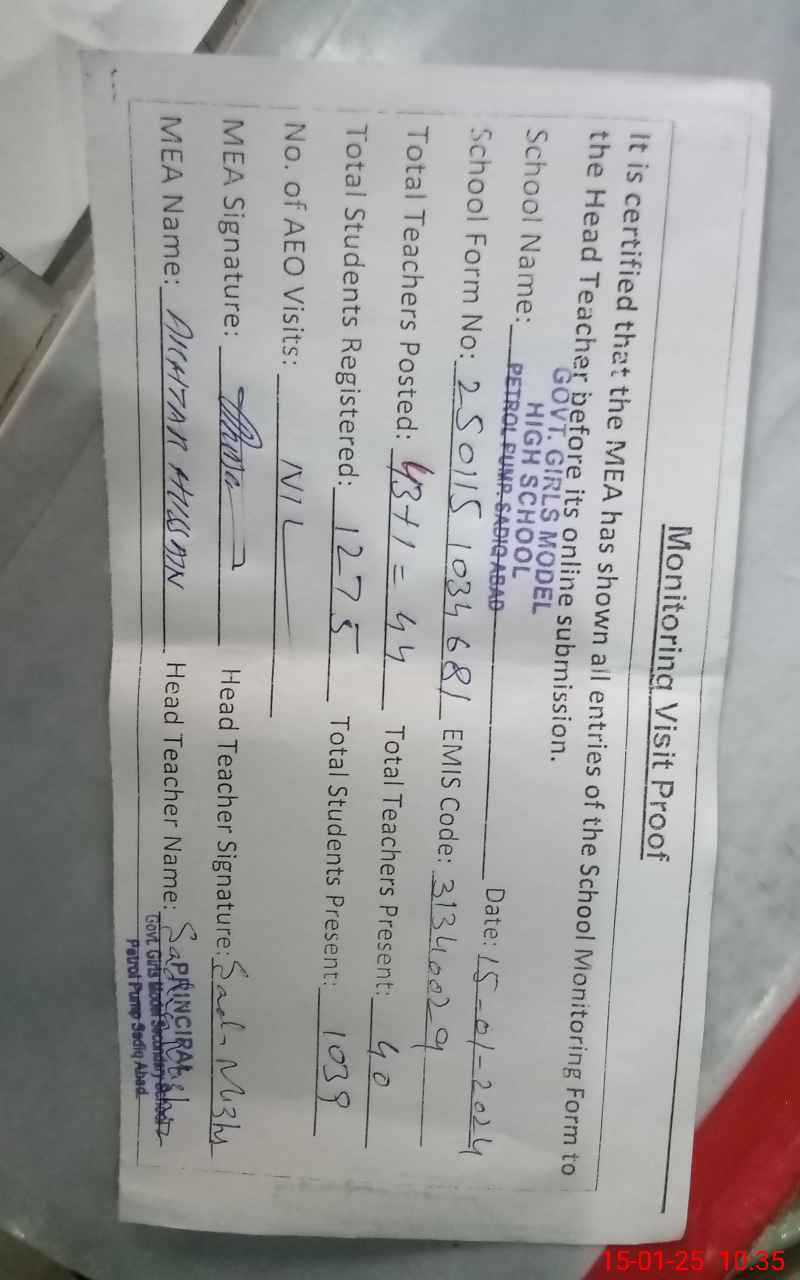 Monitoring Visit Proof
It is certified that the MEA has shown all entries of the School Monitoring Form to
the Head Teacher before its online submission.
GOVT. GIRLS MODEL
HIGH SCHOOL
PETROL PUMP. SADIQ ABAD
School Name: Date: 15-01-2024
School Form No: 250115 1034681 EMIS Code: 31340029
Total Teachers Posted: 43+1=44 Total Teachers Present: 40
Total Students Registered: 1275 Total Students Present: 1039
No. of AEO Visits: NIL
MEA Signature: Head Teacher Signature:
MEA Name: AKHTAR HUSSAIN Head Teacher Name:
PRINCIPAL
Govt. Girls Model Secondary School
Petrol Pump Sadiq Abad
15-01-25 10:35